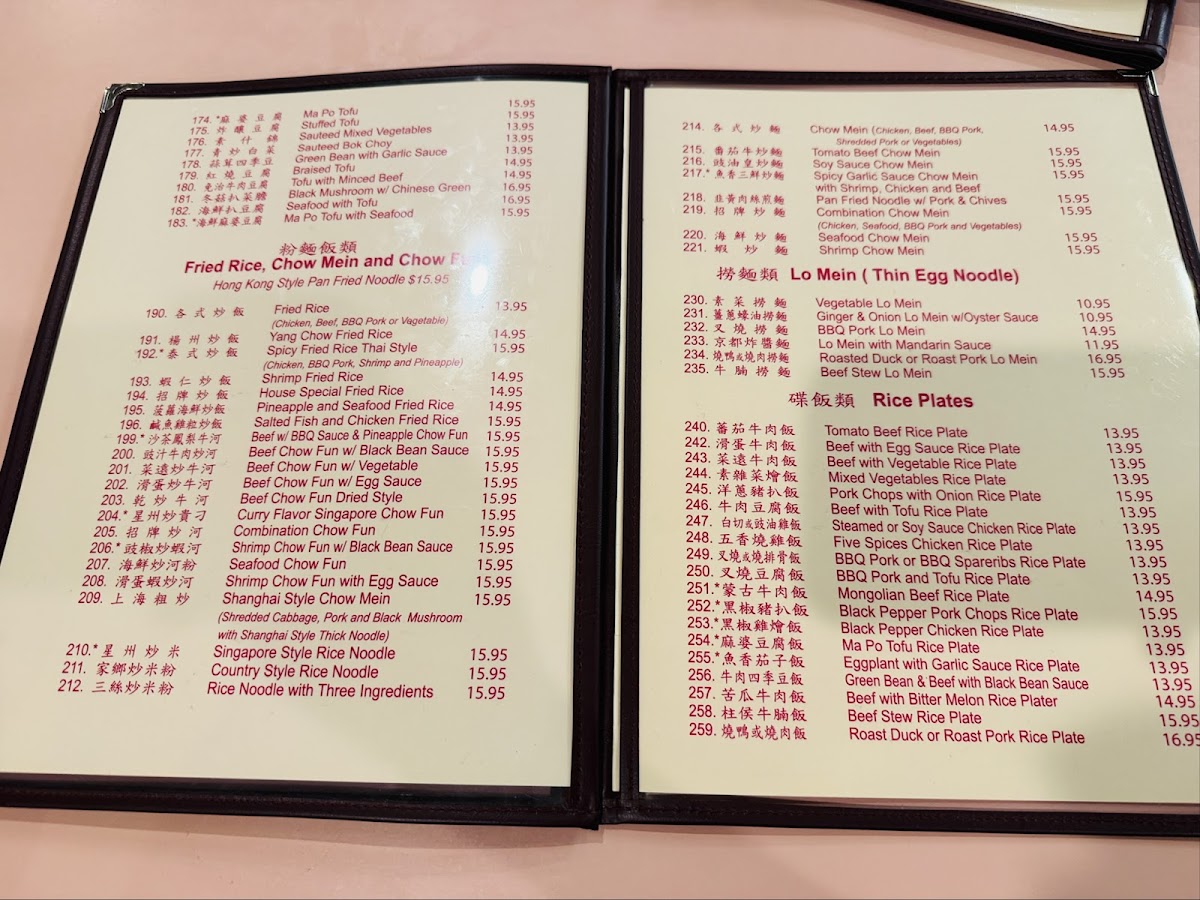 174. *麻婆豆腐 Ma Po Tofu 15.95
175. 炸釀豆腐 Stuffed Tofu 15.95
176. 素什錦 Sauteed Mixed Vegetables 13.95
177. 青炒白菜 Sauteed Bok Choy 13.95
178. 蒜茸四季豆 Green Bean with Garlic Sauce 13.95
179. 紅燒豆腐 Braised Tofu
180. 免治牛肉豆腐 Tofu with Minced Beef 14.95
181. 冬菇扒菜膽 Black Mushroom w/ Chinese Green 16.95
182. 海鮮扒豆腐 Seafood with Tofu 16.95
183. *海鮮麻婆豆腐 Ma Po Tofu with Seafood 15.95
粉麵飯類
Fried Rice, Chow Mein and Chow Fun
Hong Kong Style Pan Fried Noodle $15.95
190. 各式炒飯 Fried Rice 13.95
(Chicken, Beef, BBQ Pork or Vegetable)
191. 揚州炒飯 Yang Chow Fried Rice 14.95
192.* 泰式炒飯 Spicy Fried Rice Thai Style 15.95
(Chicken, BBQ Pork, Shrimp and Pineapple)
193. 蝦仁炒飯 Shrimp Fried Rice 14.95
194. 招牌炒飯 House Special Fried Rice 14.95
195. 菠蘿海鮮炒飯 Pineapple and Seafood Fried Rice 14.95
196. 鹹魚雞粒炒飯 Salted Fish and Chicken Fried Rice 15.95
199.* 沙茶鳳梨牛河 Beef w/ BBQ Sauce & Pineapple Chow Fun 15.95
200. 豉汁牛肉炒河 Beef Chow Fun w/ Black Bean Sauce 15.95
201. 菜遠炒牛河 Beef Chow Fun w/ Vegetable 15.95
202. 滑蛋炒牛河 Beef Chow Fun w/ Egg Sauce 15.95
203. 乾炒牛河 Beef Chow Fun Dried Style 15.95
204.* 星州炒貴刁 Curry Flavor Singapore Chow Fun 15.95
205. 招牌炒河 Combination Chow Fun 15.95
206.* 豉椒炒蝦河 Shrimp Chow Fun w/ Black Bean Sauce 15.95
207. 海鮮炒河粉 Seafood Chow Fun 15.95
208. 滑蛋蝦炒河 Shrimp Chow Fun with Egg Sauce 15.95
209. 上海粗炒 Shanghai Style Chow Mein 15.95
(Shredded Cabbage, Pork and Black Mushroom
with Shanghai Style Thick Noodle)
210.* 星州炒米 Singapore Style Rice Noodle 15.95
211. 家鄉炒米粉 Country Style Rice Noodle 15.95
212. 三絲炒米粉 Rice Noodle with Three Ingredients 15.95
214. 各式炒麵 Chow Mein (Chicken, Beef, BBQ Pork, 14.95
Shredded Pork or Vegetables)
215. 番茄牛炒麵 Tomato Beef Chow Mein 15.95
216. 豉油皇炒麵 Soy Sauce Chow Mein 15.95
217.* 魚香三鮮炒麵 Spicy Garlic Sauce Chow Mein 15.95
with Shrimp, Chicken and Beef
218. 韭黃肉絲煎麵 Pan Fried Noodle w/ Pork & Chives 15.95
219. 招牌炒麵 Combination Chow Mein 15.95
(Chicken, Seafood, BBQ Pork and Vegetables)
220. 海鮮炒麵 Seafood Chow Mein 15.95
221. 蝦炒麵 Shrimp Chow Mein 15.95
撈麵類 Lo Mein ( Thin Egg Noodle)
230. 素菜撈麵 Vegetable Lo Mein 10.95
231. 薑蔥蠔油撈麵 Ginger & Onion Lo Mein w/Oyster Sauce 10.95
232. 叉燒撈麵 BBQ Pork Lo Mein 14.95
233. 京都炸醬麵 Lo Mein with Mandarin Sauce 11.95
234. 燒鴨或燒肉撈麵 Roasted Duck or Roast Pork Lo Mein 16.95
235. 牛腩撈麵 Beef Stew Lo Mein 15.95
碟飯類 Rice Plates
240. 蕃茄牛肉飯 Tomato Beef Rice Plate 13.95
242. 滑蛋牛肉飯 Beef with Egg Sauce Rice Plate 13.95
243. 菜遠牛肉飯 Beef with Vegetable Rice Plate 14.95
244. 素雜菜燴飯 Mixed Vegetables Rice Plate 13.95
245. 洋蔥豬扒飯 Pork Chops with Onion Rice Plate 15.95
246. 牛肉豆腐飯 Beef with Tofu Rice Plate 13.95
247. 白切或豉油雞飯 Steamed or Soy Sauce Chicken Rice Plate 13.95
248. 五香燒雞飯 Five Spices Chicken Rice Plate 13.95
249. 叉燒或燒排骨飯 BBQ Pork or BBQ Spareribs Rice Plate 13.95
250. 叉燒豆腐飯 BBQ Pork and Tofu Rice Plate 13.95
251.*蒙古牛肉飯 Mongolian Beef Rice Plate 14.95
252.*黑椒豬扒飯 Black Pepper Pork Chops Rice Plate 15.95
253.*黑椒雞燴飯 Black Pepper Chicken Rice Plate 13.95
254.*麻婆豆腐飯 Ma Po Tofu Rice Plate 13.95
255.*魚香茄子飯 Eggplant with Garlic Sauce Rice Plate 13.95
256. 牛肉四季豆飯 Green Bean & Beef with Black Bean Sauce 13.95
257. 苦瓜牛肉飯 Beef with Bitter Melon Rice Plater 14.95
258. 柱侯牛腩飯 Beef Stew Rice Plate 15.95
259. 燒鴨或燒肉飯 Roast Duck or Roast Pork Rice Plate 16.95